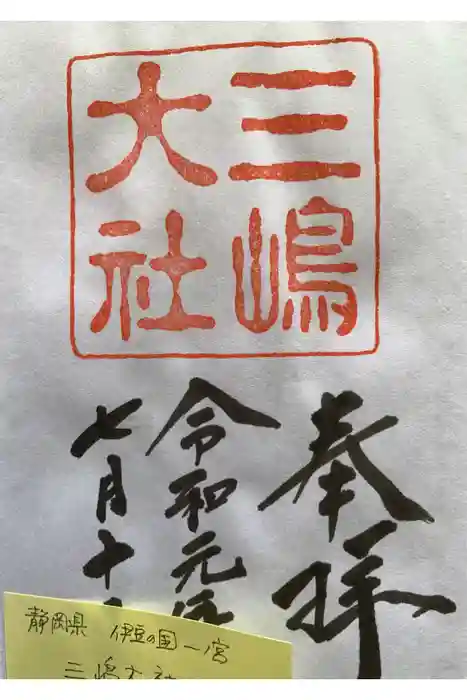 三嶋
大社
奉拝
令和元年
七月十
静岡県 伊豆の国 一宮
三嶋大社